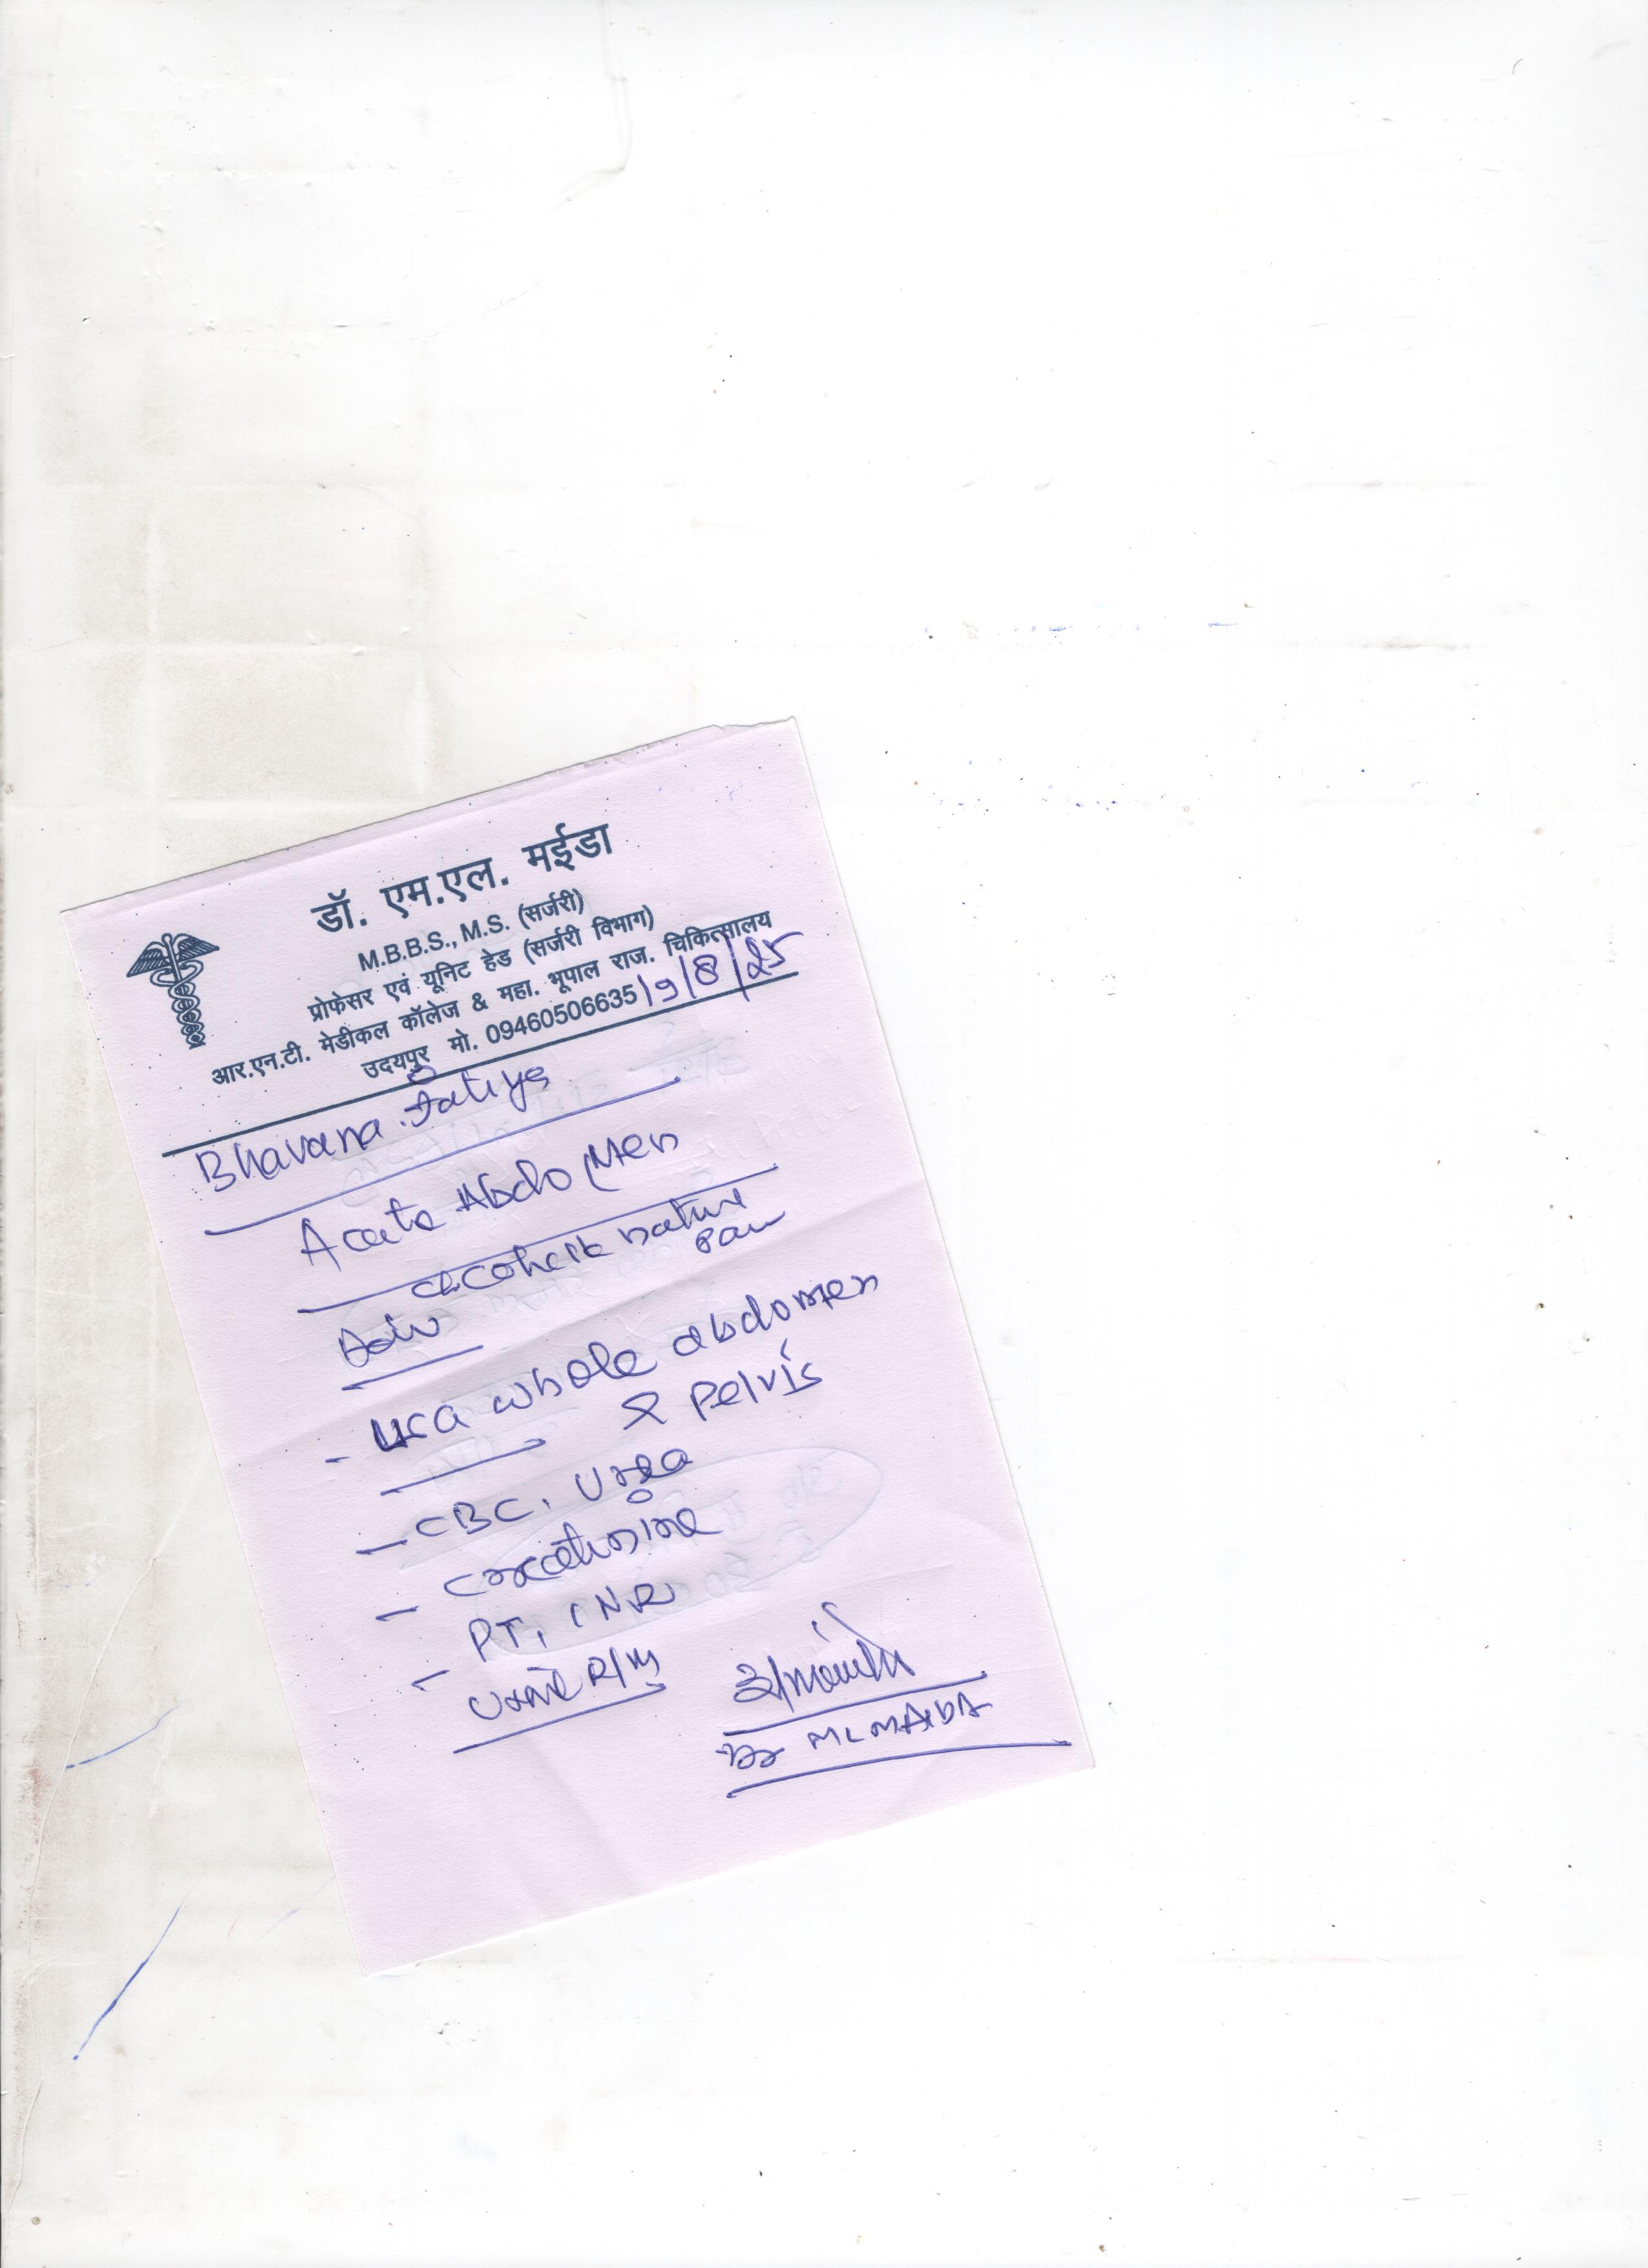 डॉ. एम.एल. मईडा
M.B.B.S., M.S. (सर्जरी)
प्रोफेसर एवं यूनिट हेड (सर्जरी विभाग)
आर.एन.टी. मेडीकल कॉलेज & महा. भूपाल राज. चिकित्सालय
उदयपुर मो. 09460506635 19/8/25
Bhavana
Acute Abdomen
nature
Adv
- whole abdomen
& Pelvis
- CBC, Urea
- Creatinine
- PT, INR
Urine R/M
Dr ML MAIDA